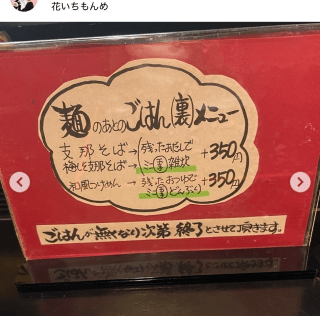 花いちもんめ
麺のあとのごはん(裏)メニュー
支那そば→(残ったおだしで
梅し支那そば→ミニ雑炊 +350円
和風つけめん→(残ったおつゆで
ミニどんぶり) +350円
ごはんが無くなり次第終了とさせて頂きます。